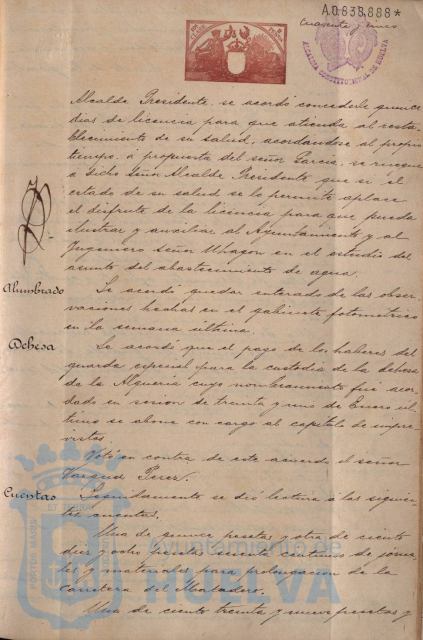 A.0.838,888*
Cuarenta y cinco
ALCALDIA CONSTITUCIONAL DE HUELVA
Alcalde Presidente, se acordó concederle quince
dias de licencia para que atienda al resta
blecimiento de su salud, acordandose al propio
tiempo, á propuesta del señor Garcia, se ruegue
a dicho Señor Alcalde Presidente que si el
estado de su salud se lo permite aplace
el disfrute de la licencia para que pueda
ilustrar y auxiliar al Ayuntamiento y al
Ingeniero Señor Uhagon en el estudio del
asunto del abastecimiento de agua.
Alumbrado
Se acordó quedar enterado de las obser
vaciones hechas en el gabinete fotometrico
en la semana última.
Dehesa
Se acordó que el pago de los haberes del
guarda especial para la custodia de la dehesa
de la Alqueria cuyo nombramiento fué acor
dado en sesion de treinta y uno de Enero ul
timo se abone con cargo al capitulo de impre
vistos.
Votó en contra de este acuerdo el señor
Vazquez Perez.
Cuentas
Seguidamente se dió lectura á las siguien
tes cuentas.
Una de quince pesetas y otra de ciento
diez y ocho pesetas centimos de jorna
les y materiales para prolongacion de la
carretera del Matadero.
Una de ciento treinta y nueve pesetas y
Ayuntamiento de
HUELVA